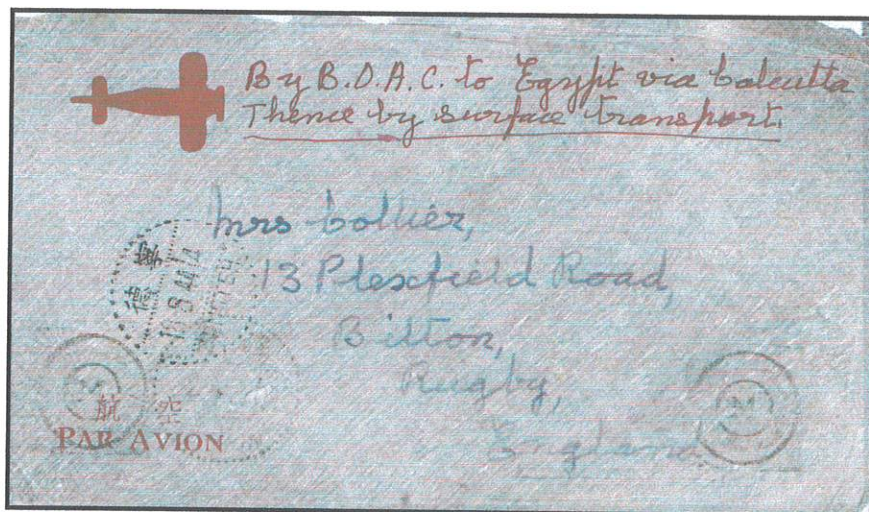 By B.O.A.C. to Egypt via Calcutta
Thence by surface transport.
Mrs Collier,
13 Plexfield Road,
Bilton,
Rugby,
England
航 空
PAR AVION